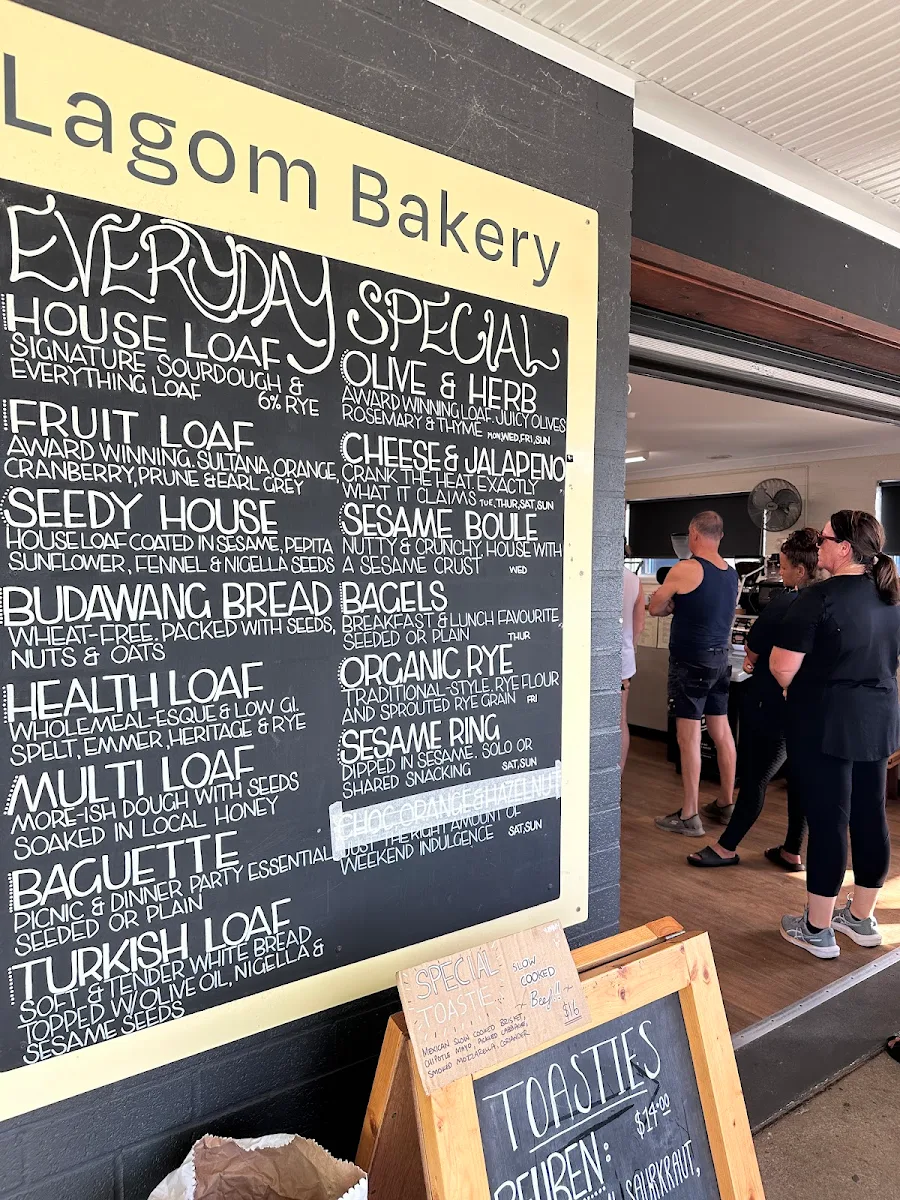 Lagom Bakery
EVERYDAY
HOUSE LOAF
SIGNATURE SOURDOUGH &
EVERYTHING LOAF 6% RYE
FRUIT LOAF
AWARD WINNING. SULTANA, ORANGE,
CRANBERRY, PRUNE & EARL GREY
SEEDY HOUSE
HOUSE LOAF COATED IN SESAME, PEPITA
SUNFLOWER, FENNEL & NIGELLA SEEDS
BUDAWANG BREAD
WHEAT-FREE. PACKED WITH SEEDS,
NUTS & OATS
HEALTH LOAF
WHOLEMEAL-ESQUE & LOW GI.
SPELT, EMMER, HERITAGE & RYE
MULTI LOAF
MORE-ISH DOUGH WITH SEEDS
SOAKED IN LOCAL HONEY
BAGUETTE
PICNIC & DINNER PARTY ESSENTIAL
SEEDED OR PLAIN
TURKISH LOAF
SOFT & TENDER WHITE BREAD
TOPPED W/ OLIVE OIL, NIGELLA &
SESAME SEEDS
SPECIAL
OLIVE & HERB
AWARD WINNING LOAF. JUICY OLIVES
ROSEMARY & THYME MON, WED, FRI, SUN
CHEESE & JALAPENO
CRANK THE HEAT. EXACTLY
WHAT IT CLAIMS TUE, THUR, SAT, SUN
SESAME BOULE
NUTTY & CRUNCHY. HOUSE WITH
A SESAME CRUST WED
BAGELS
BREAKFAST & LUNCH FAVOURITE
SEEDED OR PLAIN THUR
ORGANIC RYE
TRADITIONAL-STYLE. RYE FLOUR
AND SPROUTED RYE GRAIN FRI
SESAME RING
DIPPED IN SESAME. SOLO OR
SHARED SNACKING SAT, SUN
CHOC, ORANGE & HAZELNUT
JUST THE RIGHT AMOUNT OF
WEEKEND INDULGENCE SAT, SUN
SPECIAL
TOASTIE
SLOW
COOKED
Beef!!!
$16
MEXICAN SLOW COOKED BRISKET,
CHIPOTLE MAYO, PICKLED CABBAGE,
SMOKED MOZZARELLA, CORIANDER
TOASTIES
$14.00
REUBEN:
SAURKRAUT,